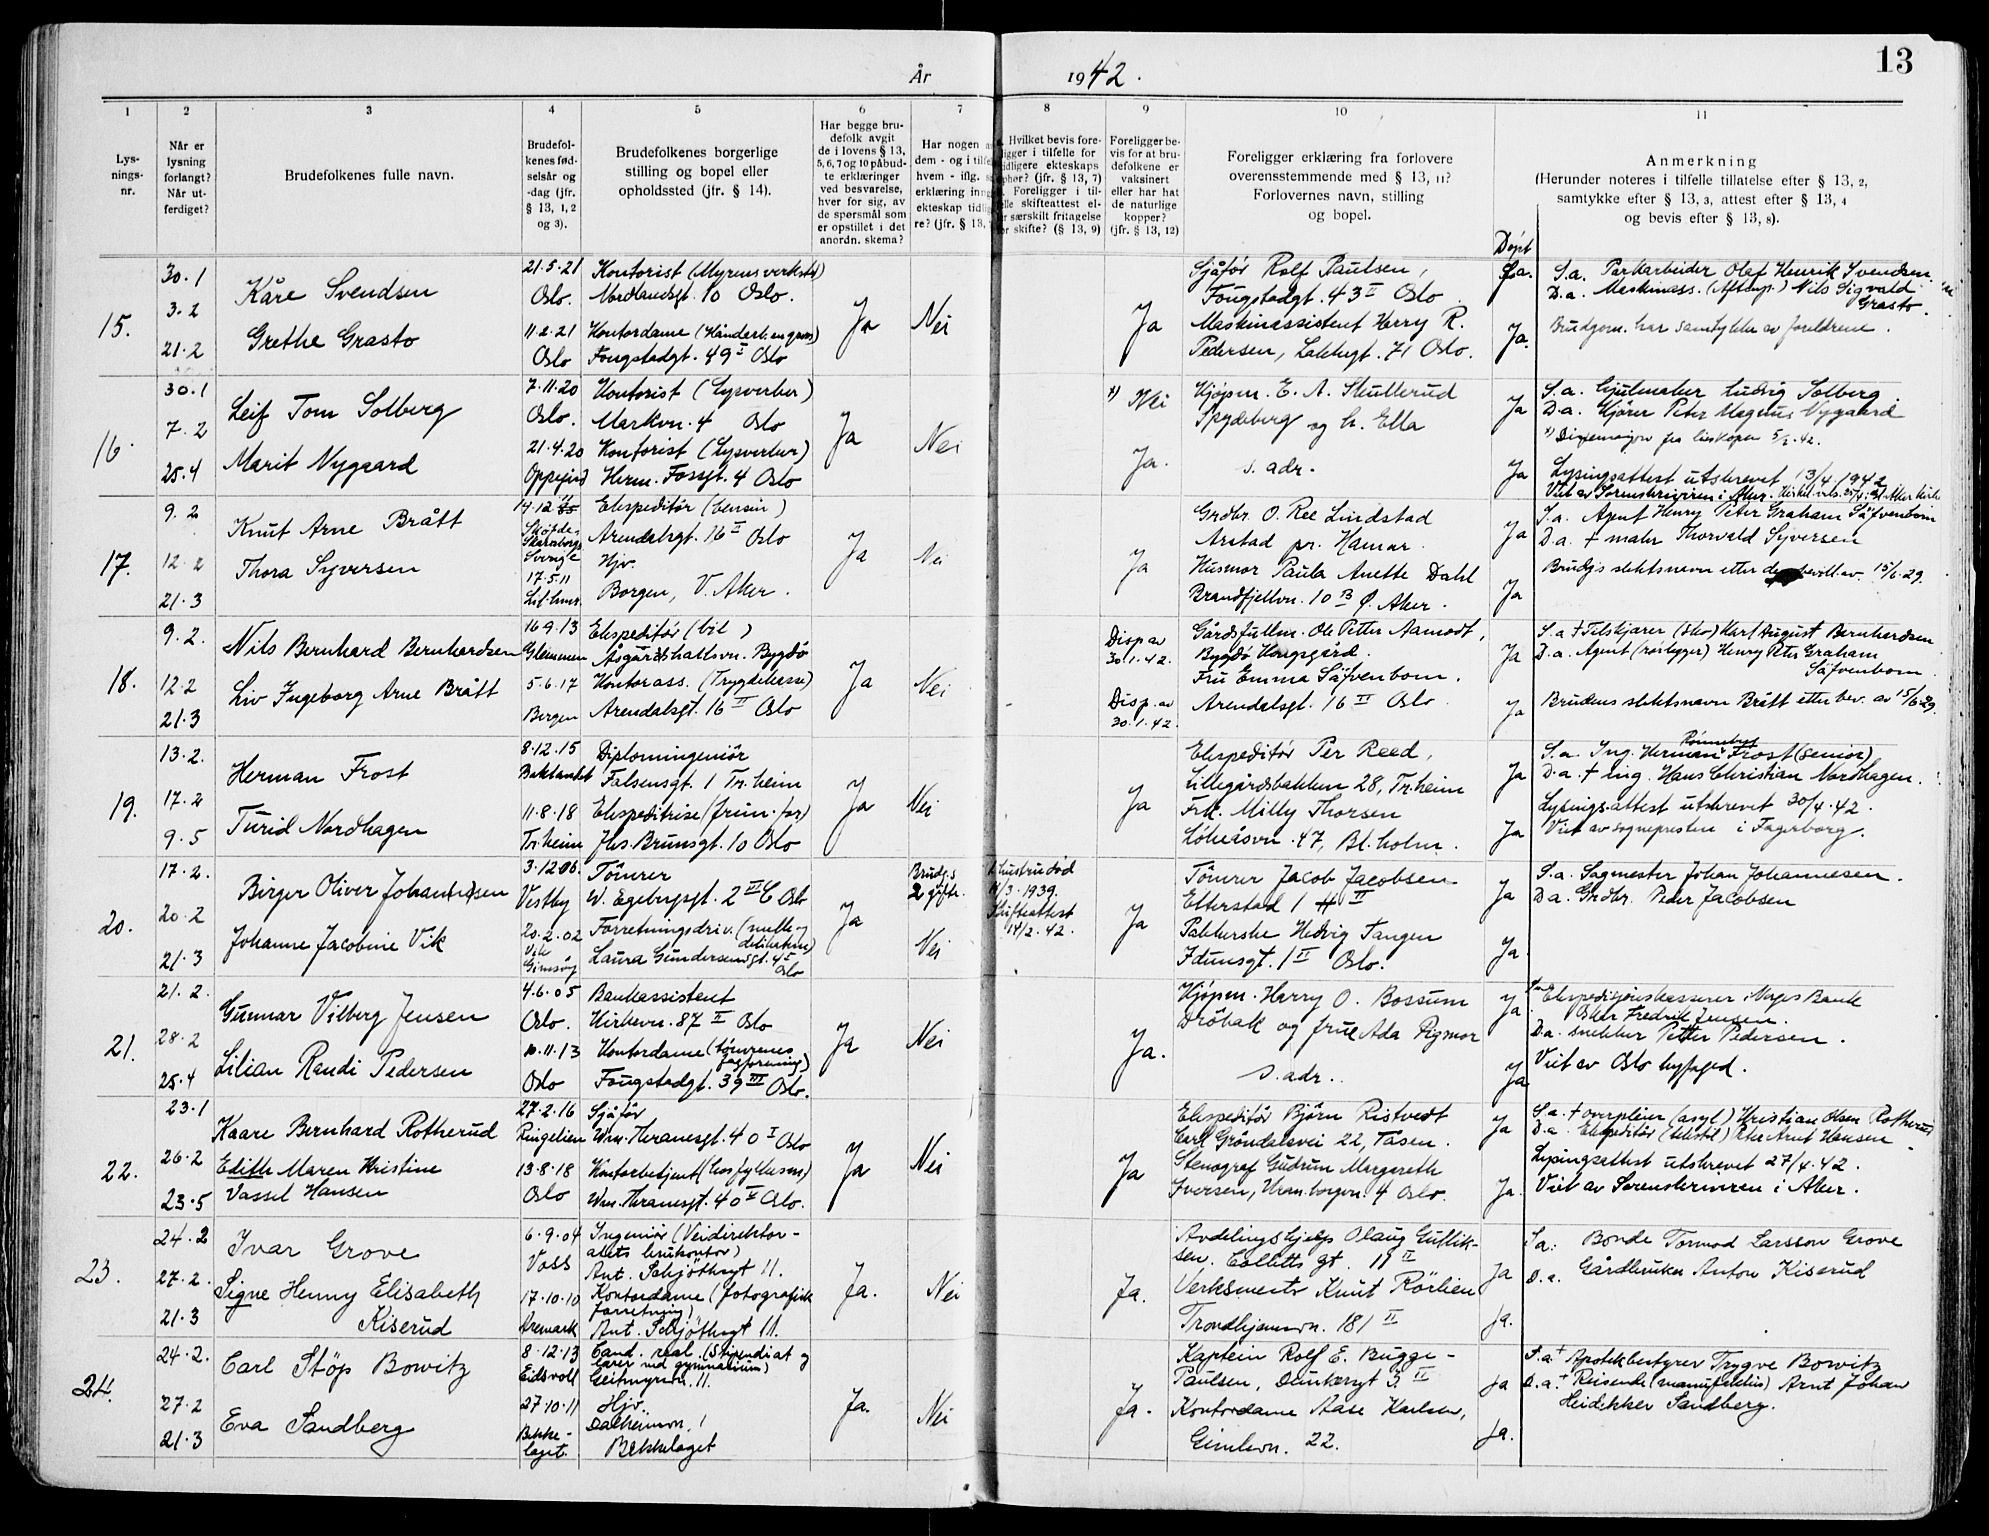 13
År 1942.
1
2
3
4
5
6
7
8
9
10
11
Lys-
nings-
nr.
Når er
lysning
forlangt?
Når ut-
ferdiget?
Brudefolkenes fulle navn.
Brudefol-
kenes fød-
selsår og
-dag (jfr.
§ 13, 1, 2
og 3).
Brudefolkenes borgerlige
stilling og bopel eller
opholdssted (jfr. § 14).
Har begge bru-
defolk avgit
de i lovens § 13,
5, 6, 7 og 10 påbud-
te erklæringer
ved besvarelse,
hver for sig, av
de spørsmål som
er opstillet i det
anordn. skema?
Har nogen
dem - og i
hvem - iflg.
erklæring
ekteskap
re? (jfr. § 13,
Hvilket bevis fore-
ligger i tilfelle for
tidligere ekteskaps
ophør? (jfr. § 13, 7)
Foreligger i til-
felle skifteattest el-
ler særskilt fritagelse
for skifte? (§ 13, 9)
Foreligger be-
vis for at bru-
defolkene er
vaksinert
eller har hat
de naturlige
kopper?
(jfr. § 13, 12)
Foreligger erklæring fra forlovere
overensstemmende med § 13, 11?
Forlovernes navn, stilling
og bopel.
Anmerkning
(Herunder noteres i tilfelle tillatelse efter § 13, 2,
samtykke efter § 13, 3, attest efter § 13, 4
og bevis efter § 13, 8).
Døpt
15.
30.1
3.2
21.2
Kåre Svendsen
Grethe Grasto
21.5.21
Oslo.
11.2.21
Oslo
Kontorist (Myrens verksted)
Nordlandsgt. 10 Oslo.
Kontordame
Fougstadgt. 49 I Oslo
Ja
Nei
Ja
Sjåfør Rolf Paulsen,
Fougstadgt. 43 II Oslo
Maskinassistent Herry R.
Pedersen, Lakkegt. 71 Oslo.
Ja.
Ja.
S.a. Parkarbeider Olaf Henrik Svendsen
D.a. Maskinass. (Aftenp.) Nils Sigvald
Grasto.
Brudgom. har samtykke av foreldrene.
16.
30.1
7.2
25.4
Leif Tom Solberg
Marit Nygaard
7.11.20
Oslo.
21.4.20
Oppegård
Kontorist (Lysverker)
Markvn. 4 Oslo
Kontorist (Lysverker)
Herm. Fossgt. 4 Oslo
Ja
Nei
x) Nei
Ja.
Kjøpm. E. A. Skullerud
Spydeberg og h. Ella
s. adr.
Ja
Ja
S.a. Hjulmaker Ludvig Solberg.
D.a. Kjører Peter Magnus Nygaard
x) Dispensasjon fra biskopen 5/2.42.
Lysingsattest utskrevet 13/4 1942
Viet av Sorenskriveren i Aker.
17.
9.2
12.2
21.3
Knut Arne Brått
Thora Syversen
14.12
Skövde,
Skaraborgs
Sverige
17.5.11
Lil.hmr.
Ekspeditør (bensin)
Arendalsgt. 16 II Oslo
Hjv.
Borgen, V. Aker.
Ja
Nei
Ja
Grdbr. O. Ree Lindstad
Arstad pr. Hamar.
Husmor Paula Anette Dahl
Brandfjellvn. 10 B Ø. Aker.
Ja
Ja
S.a. Agent Henry Peter Graham Säfvenbom
D.a. + maler Thorvald Syversen
Brudg's slektsnavn etter bevill. av 15/6.29.
18.
9.2.
12.2
21.3
Nils Bernhard Bernhardsen
Liv Ingeborg Arne Brått
16.9.13
Glemmen
5.6.17
Bergen
Ekspeditør (bil)
Åsgårdshallsvn. Bygdø
Kontorass. (Trygdekasse)
Arendalsgt. 16 II Oslo
Ja
Nei
Disp av
30.1.42.
Disp. av
30.1.42.
Gårdsfullm. Ole Petter Aamodt,
Bygdø Kongsgård.
Fru Emma Säfvenbom.
Arendalsgt. 16 II Oslo.
Ja
Ja
S.a + Tilskjærer (sko) Karl August Bernhardsen
D.a. Agent (rørlegger) Henry Peter Graham
Säfvenbom
Brudens slektsnavn Brått etter bev. av 15/6.29.
19.
13.2.
17.2
9.5
Herman Frost
Turid Nordhagen
8.12.15
Baklandet
11.8.18
Tr.heim
Diplomingeniør
Falsensgt. 1 Tr.heim
Ekspeditrise
Jhs. Brunsgt. 10 Oslo
Ja
Nei
Ja
Ekspeditør Per Reed,
Lillegårdsbakken 28, Tr.heim
Frk. Milly Thorsen
Løkeåsvn. 47, Bl.holm.
Ja
Ja
S.a. Ing. Herman Rønneberg Frost (senior)
D.a. + ing. Hans Christian Nordhagen.
Lysingsattest utskrevet 30/4.42.
Viet av sognepresten i Fagerborg.
20.
17.2.
20.2
21.3
Birger Oliver Johannesen
Johanne Jacobine Vik
3.12.06.
Vestby
20.2.02
Vik
Gimsøy
Tømrer
W. Egebergsgt. 2 III C Oslo
Forretningsdriv. (melk og
delikatesse)
Laura Gundersensgt. 4 I
Oslo
Ja
Brudg.s
2 gifte.
Nei
Hustru død
1939.
Skifteattest
14/2.42.
Ja
Tømrer Jacob Jacobsen
Etterstad 1 H II
Pakkerske Hedvig Tangen
Idunsgt. 1 II Oslo.
Ja
Ja.
S.a. Sagmester Johan Johannesen.
D.a. Grdbr. Peder Jacobsen
21.
21.2.
28.2
25.4
Gunnar Vilberg Jensen
Lilian Randi Pedersen
4.6.05
Oslo.
10.11.13
Oslo
Bankassistent
Kirkevn. 87 II Oslo
Kontordame (tømrernes
fagforening)
Fougstadgt. 39 III Oslo.
Ja
Nei
Ja.
Kjøpm. Harry O. Bossum
Drøbak og frue Ada Rigmor
s. adr..
Ja
Ja
S.a. Ekspedisjonskasserer i Norges Bank
Oskar Fredrik Jensen.
D.a. snekker Petter Pedersen.
Viet av Oslo byfoged.
22.
23.1
26.2
23.5
Kaare Bernhard Rotherud
Edith Maren Kristine
Vassel Hansen
27.2.16
Ringelien
13.8.18
Oslo
Sjåfør
Wm. Thranesgt. 40 I Oslo
Kontorbetjent
Wm. Thranesgt. 40 II Oslo.
Ja
Nei
Ja
Ekspeditør Bjørn Ristvedt
Carl Grøndalsvei 22, Tåsen.
Stenograf Gudrun Margareth
Iversen, Uranborgvn. 4 Oslo.
Ja
Ja.
S.a. + overpleier (asyl) Kristian Olsen Rotherud
D.a. Ekspeditør (tekstil) Peter Arnt Hansen
Lysingsattest utskrevet 27/4.42.
Viet av Sorenskriveren i Aker.
23.
24.2
27.2.
21.3
Ivar Grove
Signe Henny Elisabeth
Kiserud
6.9.04
Voss
17.10.10
Aremark
Ingeniør (Veidirektor-
atets brukontor)
Ant. Schjøthsgt 11.
Kontordame (fotografisk
forretning)
Ant. Schjøthsgt 11.
Ja.
Nei
Ja.
Avdelingshjelp Olaug Gullik-
sen. Colletts gt. 11 II
Verksmester Knut Rørlien
Trondhjemsvn. 181 II
Ja
Ja.
S.a: Bonde Tormod Larsson Grove
D.a. Gårdbruker Anton Kiserud
24.
24.2.
27.2
21.3
Carl Støp Bowitz
Eva Sandberg
8.12.13
Eidsvoll
27.10.11
Bekke-
laget.
Cand. real. (Stipendiat og
lærer ved gymnasium)
Geitmyrsvn. 11.
Hjv..
Dalheimvn. 1
Bekkelaget
Ja.
Nei
Ja.
Kaptein Rolf E. Bugge-
Paulsen, Dunkersgt 3. II
Kontordame Aase Karlsen,
Gimlevn. 22.
Ja
Ja.
S.a. + Apotekbestyrer Trygve Bowitz
D.a. + Reisende (manufaktur) Arnt Johan
Heidekker Sandberg.